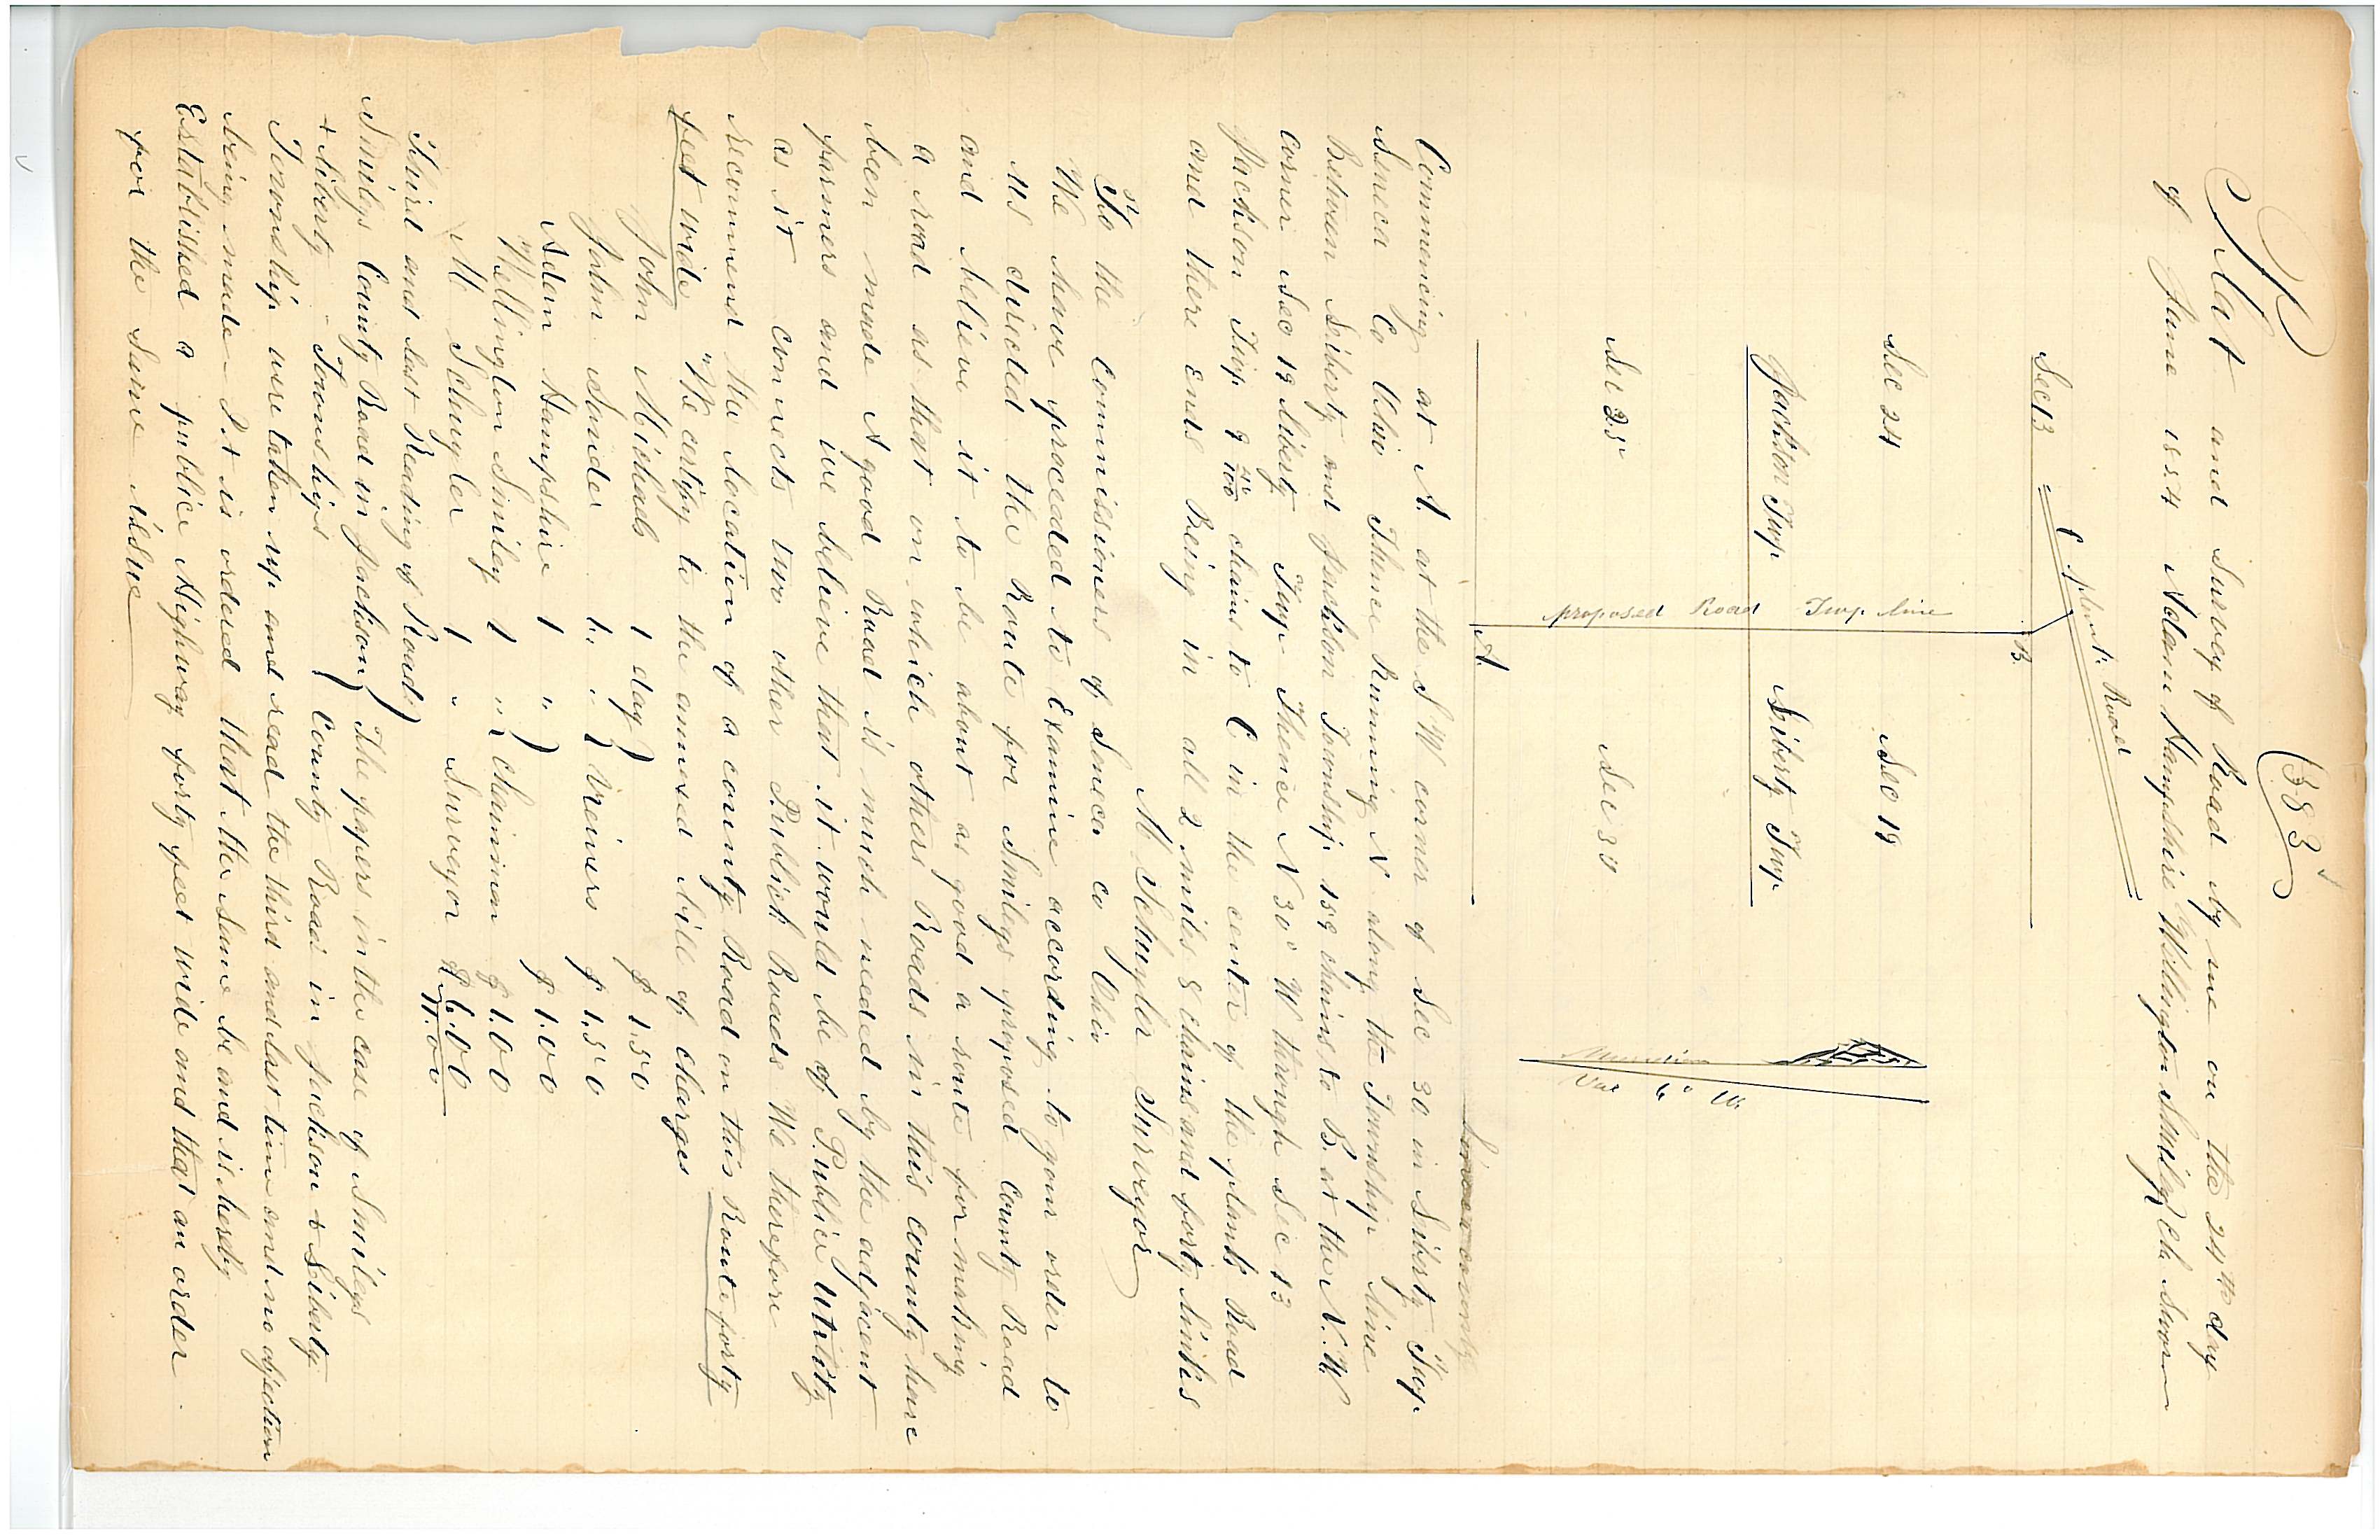 (383)
Plat and Survey of Road by me on the 24th day
of June 1854 Adam Hampshire Wellington Smiley Ch. Sworn
C plank Road
Sec 13
B.
Sec 24
Sec 19
Jackson Twp
Liberty Twp.
proposed Road Twp line
Sec 25
Sec 30
A.
Meridian
Var 6° W.
Seneca county
Commencing at A. at the S W corner of Sec 30 in Liberty Twp.
Seneca Co Ohio Thence Running N along the Township line
Between Liberty and Jackson Township 159 chains to B. at the N. W
corner Sec 19 Liberty Twp Thence N 30° W through Sec 13
Jackson Twp 9 40/100 chains to C in the center of the plank Road
and there ends Being in all 2 miles 8 chains and forty links
M Schuyler Surveyor
To the Commissioners of Seneca co Ohio
We have proceeded to Examine according to your order to
us directed the Route for Smileys proposed County Road
and believe it to be about as good a route for making
a road as that on which others Roads in this county have
been made A good Road is much needed by the adjacent
farmers and we believe that it would be of Public Utility
as it connects two other Publick Roads We therefore
recommend the location of a county Road on this Route forty
feet wide "We certify to the annexed bill of charges
John Michals 1 day ) $ 1.50
John Sander 1. " } Veiwers $ 1.50
Adam Hampshire 1 " ) $ 1.00
Wellington Smiley 1 " } chainmen $ 1.00
M Schuyler 1 " Surveyor $ 6.00
11.00
Third and last Reading of Road )
Smileys County Road in Jackson ) The papers in the case of Smileys
& Liberty Townships ( County Road in Jackson & Liberty
Township were taken up and read the third and last time and no objection
being made It is ordered that the Same be and is hereby
Established a public Highway forty feet wide and that an order
for the Same issue